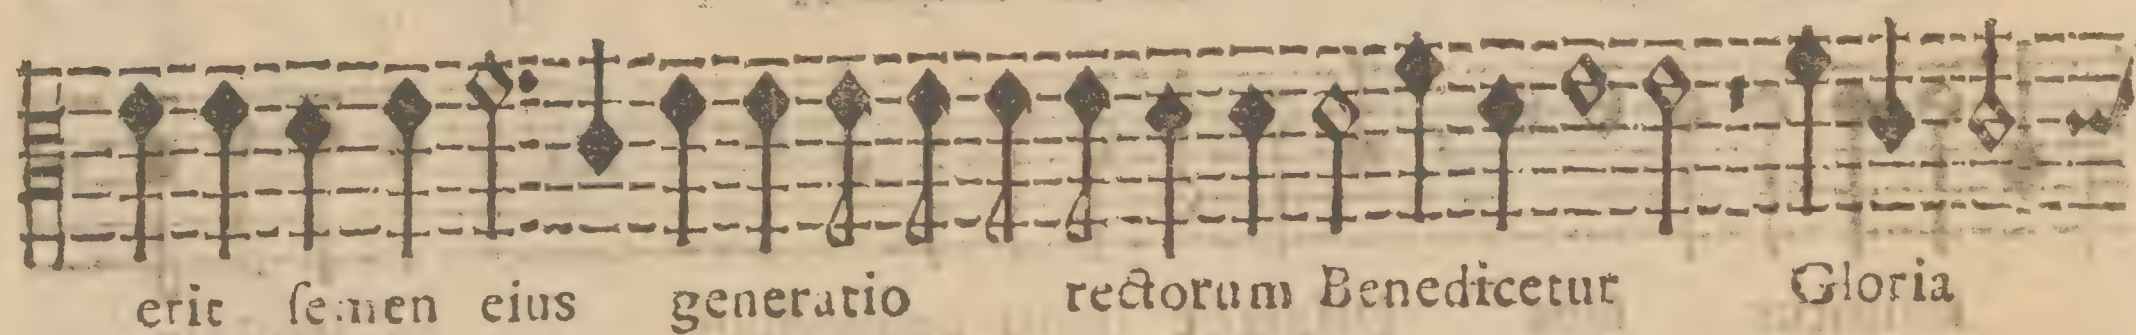 erit ſemen eius generatio rectorum Benedicetur Gloria